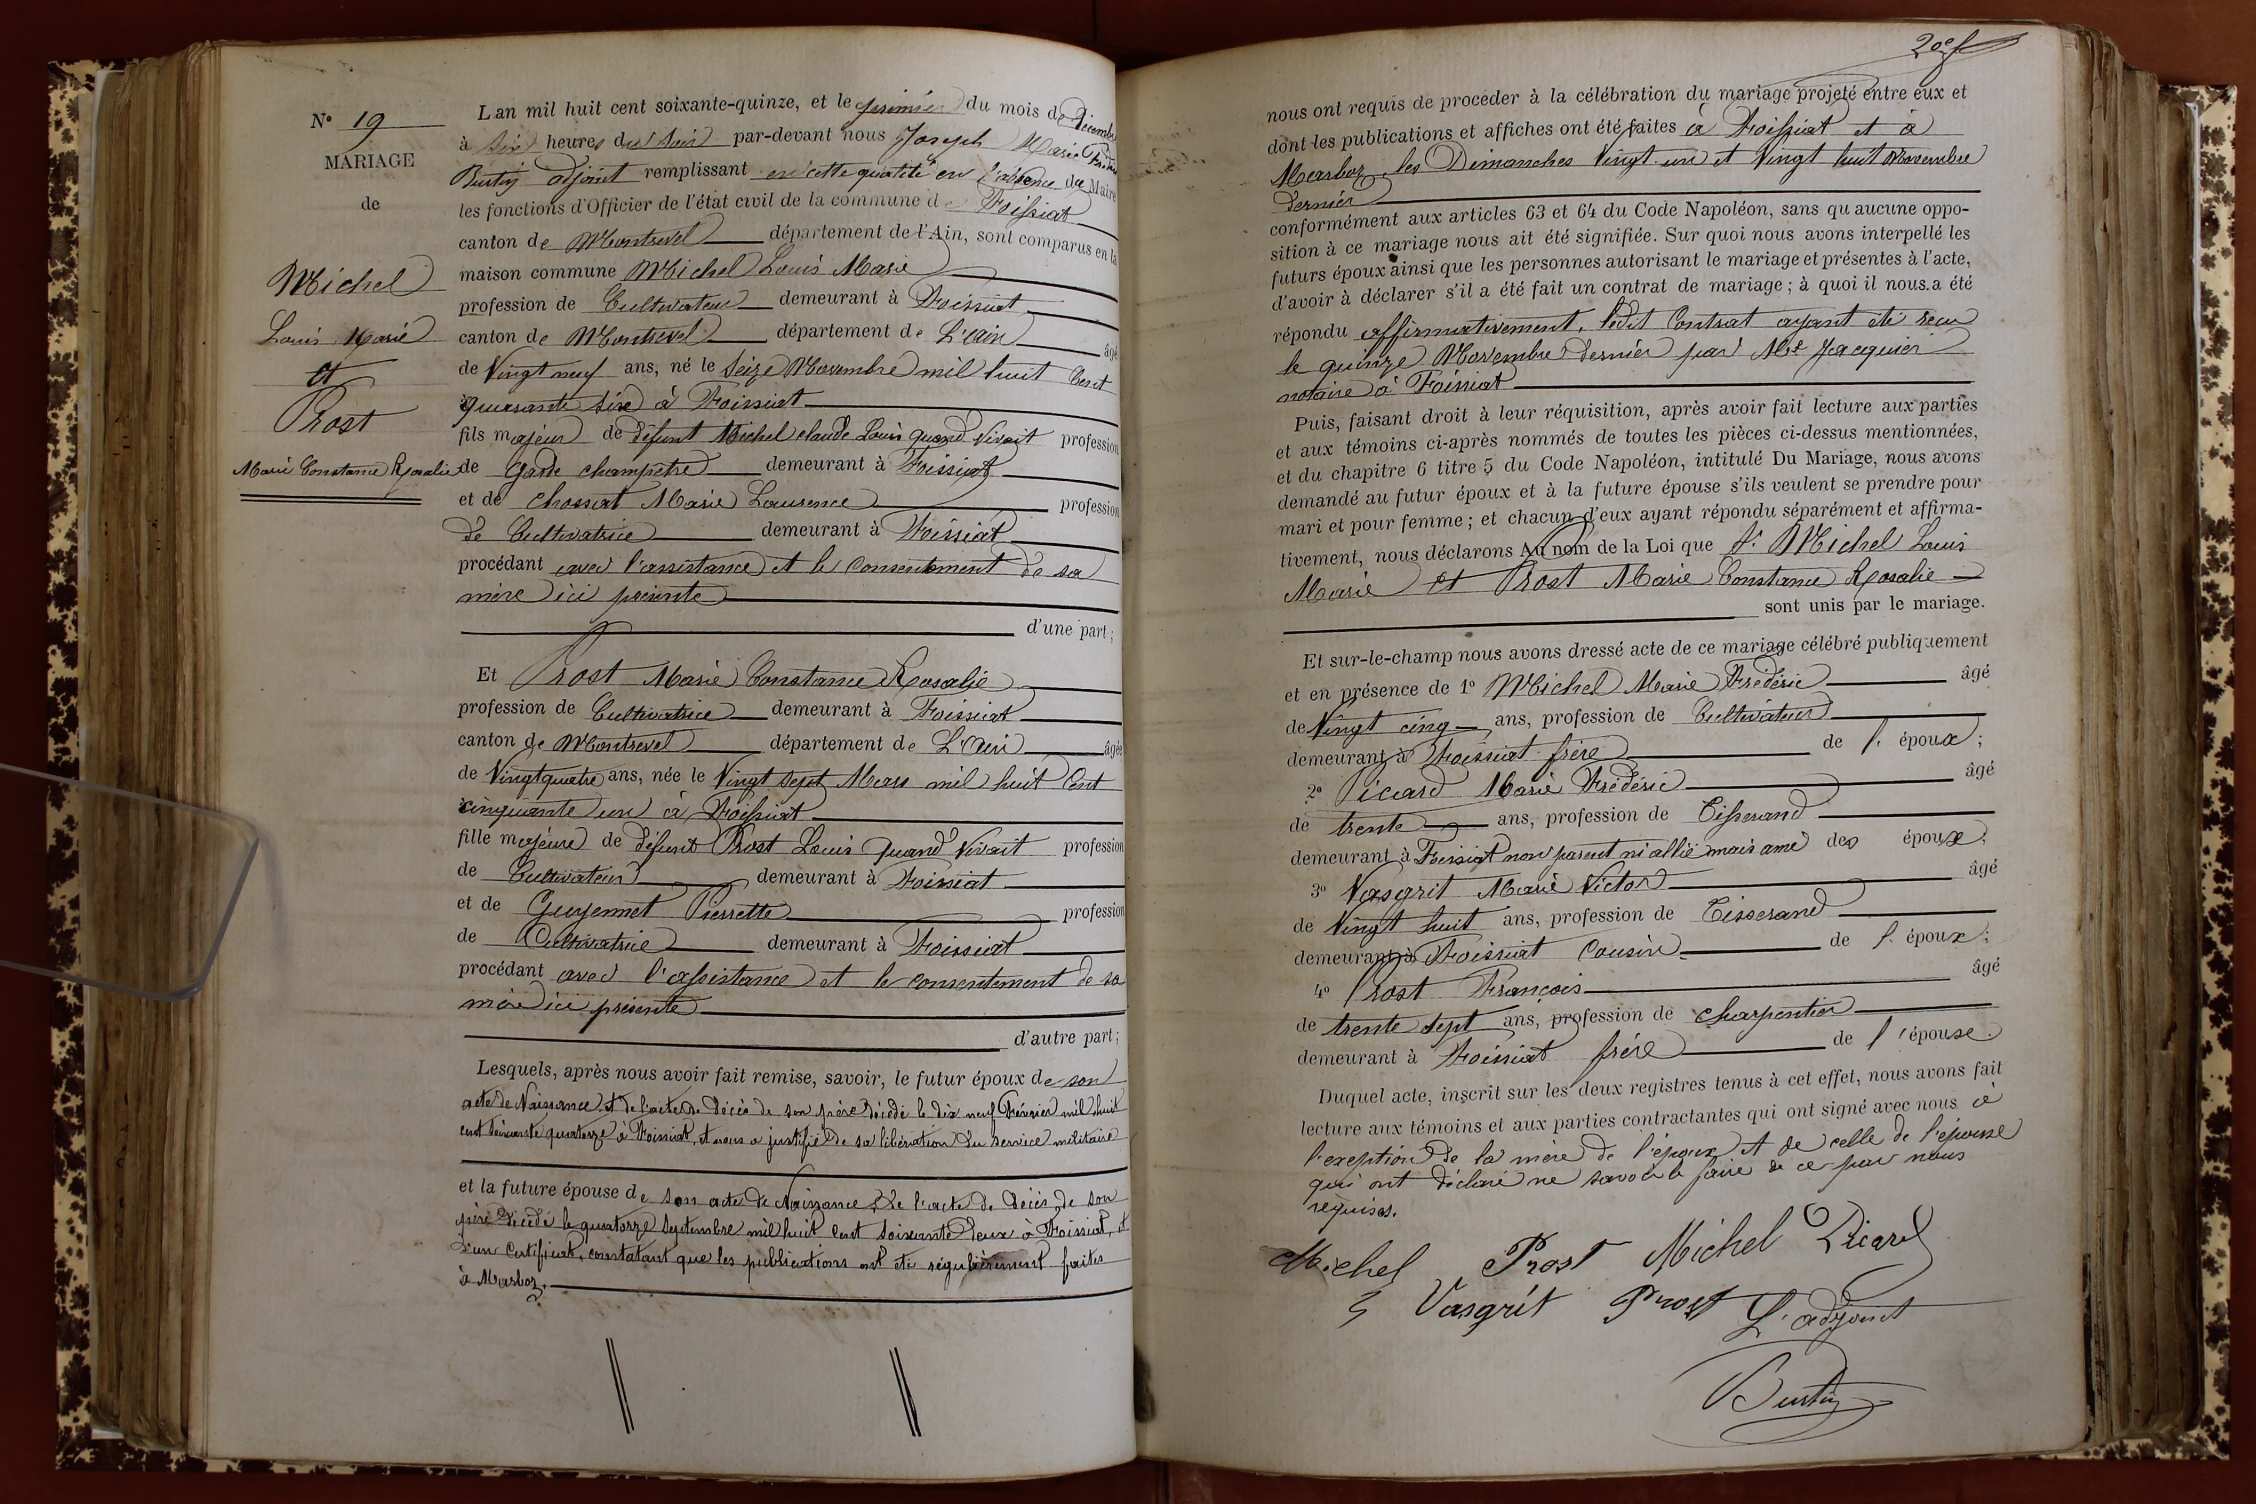 N° 19
MARIAGE
de
Michel
Louis Marie
et
Prost
Marie Constance Rosalie
L'an mil huit cent soixante-quinze, et le premier du mois de Décembre
à six heures du soir par-devant nous Joseph Marie
adjoint remplissant en cette qualité en l'absence du Maire
les fonctions d'Officier de l'état civil de la commune de Foissiat
canton de Montrevel département de l'Ain, sont comparus en la
maison commune Michel Louis Marie
profession de Cultivateur demeurant à Foissiat
canton de Montrevel département de L'ain âgé
de Vingt neuf ans, né le Seize Novembre mil huit Cent
quarante six à Foissiat
fils majeur de défunt Michel claude Louis quand Vivait profession
de garde champêtre demeurant à Foissiat
et de Chossat Marie Laurence profession
de Cultivatrice demeurant à Foissiat
procédant avec l'assistance et le consentement de sa
mère ici présente
d'une part;
Et Prost Marie Constance Rosalie
profession de Cultivatrice demeurant à Foissiat
canton de Montrevel département de L'Ain âgée
de Vingt quatre ans, née le Vingt sept Mars mil huit Cent
cinquante un à Foissiat
fille majeure de défunt Prost Louis quand Vivait profession
de Cultivateur demeurant à Foissiat
et de Guyennet Pierrette profession
de Cultivatrice demeurant à Foissiat
procédant avec l'assistance et le consentement de sa
mère ici présente
d'autre part;
Lesquels, après nous avoir fait remise, savoir, le futur époux de son
acte de Naissance et de l'acte de Décès de son père Décédé le dix neuf Février mil huit
cent soixante quatorze à Foissiat, et nous a justifié de sa libération du service militaire
et la future épouse de son acte de Naissance, de l'acte de Décès de son
père Décédé le quatorze Septembre mil huit Cent soixante Deux à Foissiat, et
d'un Certificat, constatant que les publications ont été régulièrement faites
à Marboz.
20e f
nous ont requis de procéder à la célébration du mariage projeté entre eux et
dont les publications et affiches ont été faites à Foissiat et à
Marboz les Dimanches Vingt un et Vingt huit Novembre
Dernier
conformément aux articles 63 et 64 du Code Napoléon, sans qu'aucune oppo-
sition à ce mariage nous ait été signifiée. Sur quoi nous avons interpellé les
futurs époux ainsi que les personnes autorisant le mariage et présentes à l'acte,
d'avoir à déclarer s'il a été fait un contrat de mariage; à quoi il nous a été
répondu affirmativement, ledit Contrat ayant été reçu
le quinze Novembre Dernier par Me Jacquier
notaire à Foissiat
Puis, faisant droit à leur réquisition, après avoir fait lecture aux parties
et aux témoins ci-après nommés de toutes les pièces ci-dessus mentionnées,
et du chapitre 6 titre 5 du Code Napoléon, intitulé Du Mariage, nous avons
demandé au futur époux et à la future épouse s'ils veulent se prendre pour
mari et pour femme; et chacun d'eux ayant répondu séparément et affirma-
tivement, nous déclarons Au nom de la Loi que Michel Louis
Marie et Prost Marie Constance Rosalie
sont unis par le mariage.
Et sur-le-champ nous avons dressé acte de ce mariage célébré publiquement
et en présence de 1° Michel Marie Frédéric âgé
de Vingt cinq ans, profession de Cultivateur
demeurant à Foissiat frère de l' époux;
2° Picard Marie Frédéric âgé
de trente ans, profession de Tisserand
demeurant à Foissiat non parent ni allié mais ami des époux;
3° Vasgrit Marie Victor âgé
de Vingt huit ans, profession de Tisserand
demeurant à Foissiat Cousin de l' époux;
4° Prost François âgé
de trente sept ans, profession de charpentier
demeurant à Foissiat frère de l'épouse.
Duquel acte, inscrit sur les deux registres tenus à cet effet, nous avons fait
lecture aux témoins et aux parties contractantes qui ont signé avec nous à
l'exeption de la mère de l'époux et de celle de l'épouse
qui ont déclaré ne savoir le faire de ce par nous
réquises.
Michel Prost Michel Picard
Vasgrit Prost L'adjoint